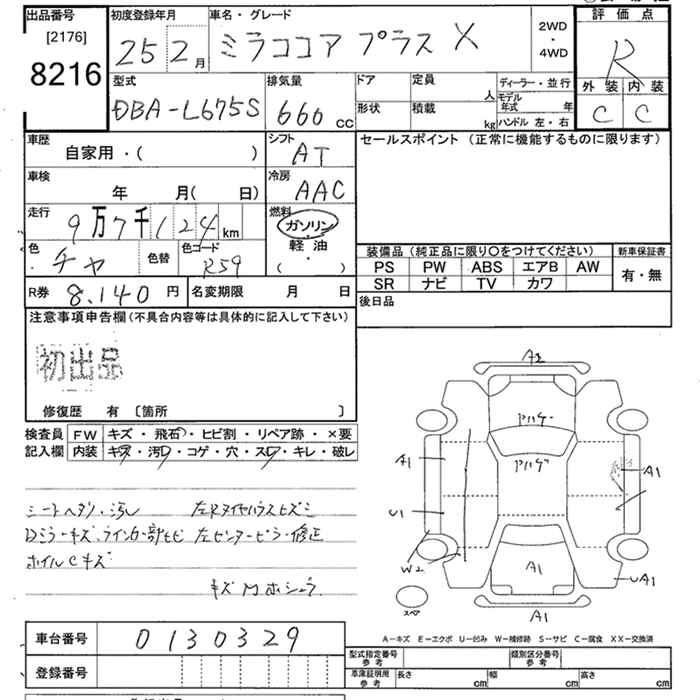 出品番号
[2176]
8216
初度登録年月
25 2月
車名・グレード
ミラココア プラス X
2WD
・
4WD
評価点
R
外装 内装
C C
型式
DBA-L675S
排気量
660 CC
ドア
形状
定員
人
積載
kg
ディーラー・並行
モデル
年式 年
ハンドル 左・右
車歴
自家用・( )
シフト
AT
セールスポイント (正常に機能するものに限ります)
車検
年 月( 日)
冷房
AAC
走行
9万7千124km
燃料
ガソリン
・
軽油
( )
色
チャ
色替
色コード
R59
装備品 (純正品に限り〇をつけてください)
新車保証書
PS PW ABS エアB AW
SR ナビ TV カワ
有・無
R券 8.140円
名変期限 月 日
後日品
注意事項申告欄 (不具合内容等は具体的に記入して下さい)
初出品
修復歴 有 〔箇所 〕
検査員
記入欄
FW キズ・飛石・ヒビ割・リペア跡・×要
内装 キズ・汚レ・コゲ・穴・スレ・キレ・破レ
シートヘタリ・汚レ 左Rタイヤハウスヒズミ
Dミラーキズ 左センターピラー修正
ホイルCキズ
A2
A1
U1
W2
A1
A1
UA1
A1
スペア
A-キズ E-エクボ U-凹み W-補修跡 S-サビ C-腐食 XX-交換済
車台番号 0130329
登録番号
型式指定番号
参考
類別区分番号
参考
車庫証明用
参考
長さ cm
幅 cm
高さ cm